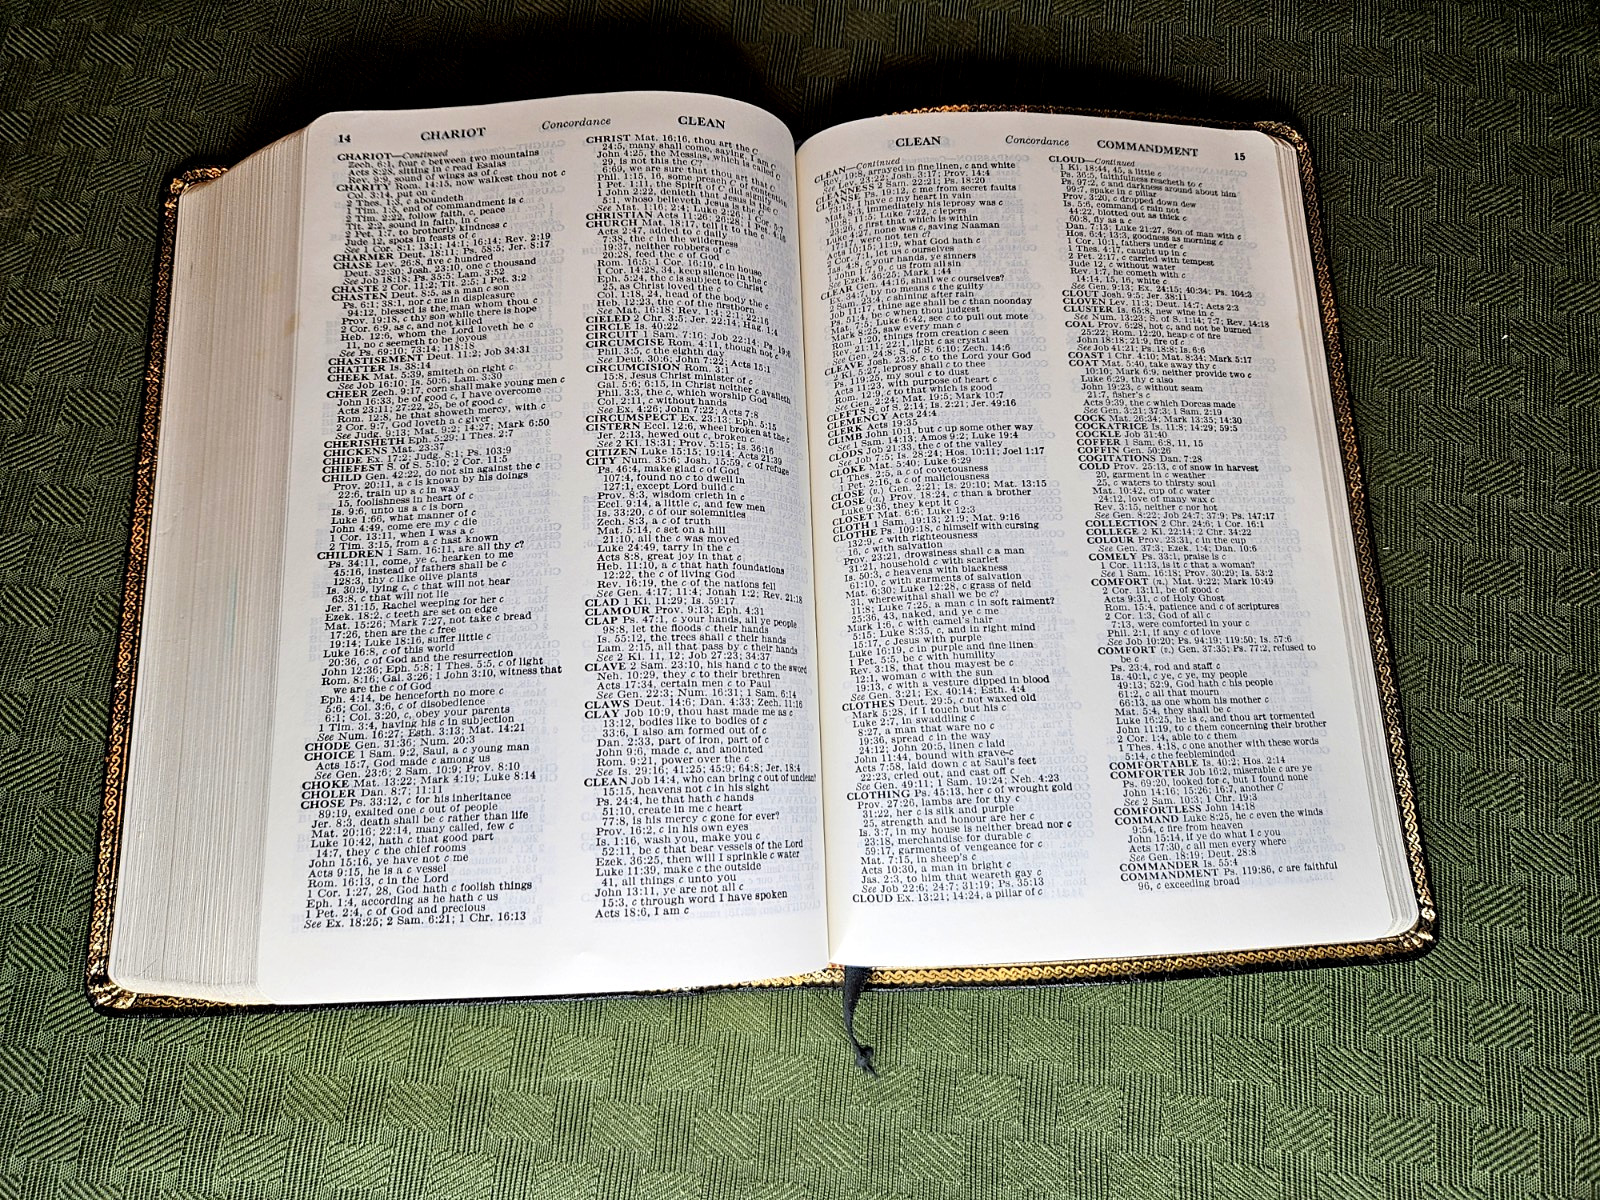 14 CHARIOT Concordance CLEAN
CHARIOT—Continued
Zech. 6:1, four c between two mountains
Acts 8:28, sitting in c read Esaias
Rev. 9:9, sound of wings as of c
CHARITY Rom. 14:15, now walkest thou not c
Col. 3:14, put on c
2 Thes. 1:3, c aboundeth
1 Tim. 1:5, end of commandment is c
2 Tim. 2:22, follow faith, c, peace
Tit. 2:2, sound in faith, in c
2 Pet. 1:7, to brotherly kindness c
Jude 12, spots in feasts of c
See 1 Cor. 8:1; 13:1; 14:1; 16:14; Rev. 2:19
CHARMER Deut. 18:11; Ps. 58:5; Jer. 8:17
CHASE Lev. 26:8, five c hundred
Deut. 32:30; Josh. 23:10, one c thousand
See Job 18:18; Ps. 35:5; Lam. 3:52
CHASTE 2 Cor. 11:2; Tit. 2:5; 1 Pet. 3:2
CHASTEN Deut. 8:5, as a man c son
Ps. 6:1; 38:1, nor c me in displeasure
94:12, blessed is the man whom thou c
Prov. 19:18, c thy son while there is hope
2 Cor. 6:9, as c, and not killed
Heb. 12:6, whom the Lord loveth he c
11, no c seemeth to be joyous
See Ps. 69:10; 73:14; 118:18
CHASTISEMENT Deut. 11:2; Job 34:31
CHATTER Is. 38:14
CHEEK Mat. 5:39, smiteth on right c
See Job 16:10; Is. 50:6; Lam. 3:30
CHEER Zech. 9:17, corn shall make young men c
John 16:33, be of good c, I have overcome
Acts 23:11; 27:22, 25, be of good c
Rom. 12:8, he that showeth mercy, with c
2 Cor. 9:7, God loveth a c giver
See Judg. 9:13; Mat. 9:2; 14:27; Mark 6:50
CHERISHETH Eph. 5:29; 1 Thes. 2:7
CHICKENS Mat. 23:37
CHIDE Ex. 17:2; Judg. 8:1; Ps. 103:9
CHIEFEST S. of S. 5:10; 2 Cor. 11:5
CHILD Gen. 42:22, do not sin against the c
Prov. 20:11, a c is known by his doings
22:6, train up a c in way
15, foolishness in heart of c
Is. 9:6, unto us a c is born
Luke 1:66, what manner of c
John 4:49, come ere my c die
1 Cor. 13:11, when I was a c
2 Tim. 3:15, from a c hast known
CHILDREN 1 Sam. 16:11, are all thy c?
Ps. 34:11, come, ye c, hearken to me
45:16, instead of fathers shall be c
128:3, thy c like olive plants
Is. 30:9, lying c, c that will not hear
63:8, c that will not lie
Jer. 31:15, Rachel weeping for her c
Ezek. 18:2, c teeth are set on edge
Mat. 15:26; Mark 7:27, not take c bread
17:26, then are the c free
19:14; Luke 18:16, suffer little c
Luke 16:8, c of this world
20:36, c of God and the resurrection
John 12:36; Eph. 5:8; 1 Thes. 5:5, c of light
Rom. 8:16; Gal. 3:26; 1 John 3:10, witness that
we are the c of God
Eph. 4:14, be henceforth no more c
5:6; Col. 3:6, c of disobedience
6:1; Col. 3:20, c, obey your parents
1 Tim. 3:4, having his c in subjection
See Num. 16:27; Esth. 3:13; Mat. 14:21
CHODE Gen. 31:36; Num. 20:3
CHOICE 1 Sam. 9:2, Saul, a c young man
Acts 15:7, God made c among us
See Gen. 23:6; 2 Sam. 10:9; Prov. 8:10
CHOKE Mat. 13:22; Mark 4:19; Luke 8:14
CHOLER Dan. 8:7; 11:11
CHOSE Ps. 33:12, c for his inheritance
89:19, exalted one c out of people
Jer. 8:3, death shall be c rather than life
Mat. 20:16; 22:14, many called, few c
Luke 10:42, hath c that good part
14:7, they c the chief rooms
John 15:16, ye have not c me
Acts 9:15, he is a c vessel
Rom. 16:13, c in the Lord
1 Cor. 1:27, 28, God hath c foolish things
Eph. 1:4, according as he hath c us
1 Pet. 2:4, c of God and precious
See Ex. 18:25; 2 Sam. 6:21; 1 Chr. 16:13
CHRIST Mat. 16:16, thou art the C
24:5, many shall come, saying, I am C
John 4:25, the Messias, which is called C
29, is not this the C?
6:69, we are sure that thou art that C
Phil. 1:15, 16, some preach C of contention
1 Pet. 1:11, the Spirit of C did signify
1 John 2:22, denieth that Jesus is the C
5:1, whoso believeth Jesus is the C
See Mat. 1:16; 2:4; Luke 2:26
CHRISTIAN Acts 11:26; 26:28; 1 Pet. 4:16
CHURCH Mat. 18:17, tell it to the c
Acts 2:47, added to c daily
7:38, the c in the wilderness
19:37, neither robbers of c
20:28, feed the c of God
Rom. 16:5; 1 Cor. 16:19, c in house
1 Cor. 14:28, 34, keep silence in the c
Eph. 5:24, the c is subject to Christ
25, as Christ loved the c
Col. 1:18, 24, head of the body the c
Heb. 12:23, the c of the firstborn
See Mat. 16:18; Rev. 1:4; 2:1; 22:16
CIELED 2 Chr. 3:5; Jer. 22:14; Hag. 1:4
CIRCLE Is. 40:22
CIRCUIT 1 Sam. 7:16; Job 22:14; Ps. 19:6
CIRCUMCISE Rom. 4:11, though not c
Phil. 3:5, c the eighth day
See Deut. 30:6; John 7:22; Acts 15:1
CIRCUMCISION Rom. 3:1
15:8, Jesus Christ minister of c
Gal. 5:6; 6:15, in Christ neither c availeth
Phil. 3:3, the c, which worship God
Col. 2:11, c without hands
See Ex. 4:26; John 7:22; Acts 7:8
CIRCUMSPECT Ex. 23:13; Eph. 5:15
CISTERN Eccl. 12:6, wheel broken at the c
Jer. 2:13, hewed out c, broken c
See 2 Ki. 18:31; Prov. 5:15; Is. 36:16
CITIZEN Luke 15:15; 19:14; Acts 21:39
CITY Num. 35:6; Josh. 15:59, c of refuge
Ps. 46:4, make glad c of God
107:4, found no c to dwell in
127:1, except Lord build c
Prov. 8:3, wisdom crieth in c
Eccl. 9:14, a little c, and few men
Is. 33:20, c of our solemnities
Zech. 8:3, a c of truth
Mat. 5:14, c set on a hill
21:10, all the c was moved
Luke 24:49, tarry in the c
Acts 8:8, great joy in that c
Heb. 11:10, a c that hath foundations
12:22, the c of living God
Rev. 16:19, the c of the nations fell
See Gen. 4:17; 11:4; Jonah 1:2; Rev. 21:18
CLAD 1 Ki. 11:29; Is. 59:17
CLAMOUR Prov. 9:13; Eph. 4:31
CLAP Ps. 47:1, c your hands, all ye people
98:8, let the floods c their hands
Is. 55:12, the trees shall c their hands
Lam. 2:15, all that pass by c their hands
See 2 Ki. 11, 12; Job 27:23; 34:37
CLAVE 2 Sam. 23:10, his hand c to the sword
Neh. 10:29, they c to their brethren
Acts 17:34, certain men c to Paul
See Gen. 22:3; Num. 16:31; 1 Sam. 6:14
CLAWS Deut. 14:6; Dan. 4:33; Zech. 11:16
CLAY Job 10:9, thou hast made me as c
13:12, bodies like to bodies of c
33:6, I also am formed out of c
Dan. 2:33, part of iron, part of c
John 9:6, made c, and anointed
Rom. 9:21, power over the c
See Is. 29:16; 41:25; 45:9; 64:8; Jer. 18:4
CLEAN Job 14:4, who can bring c out of unclean?
15:15, heavens not c in his sight
Ps. 24:4, he that hath c hands
51:10, create in me c heart
77:8, is his mercy c gone for ever?
Prov. 16:2, c in his own eyes
Is. 1:16, wash you, make you c
52:11, be c that bear vessels of the Lord
Ezek. 36:25, then will I sprinkle c water
Luke 11:39, make c the outside
41, all things c unto you
John 13:11, ye are not all c
15:3, c through word I have spoken
Acts 18:6, I am c
CLEAN Concordance COMMANDMENT 15
CLEAN—Continued
Rev. 19:8, arrayed in fine linen, c and white
See Lev. 23:22; Josh. 3:17; Prov. 14:4
CLEANNESS 2 Sam. 22:21; Ps. 18:20
CLEANSE Ps. 19:12, c me from secret faults
73:13, I have c my heart in vain
Mat. 8:3, immediately his leprosy was c
10:8, 11:5; Luke 7:22, c lepers
23:26, c first that which is within
Luke 4:27, none was c, saving Naaman
17:17, were not ten c?
Acts 10:15; 11:9, what God hath c
2 Cor. 7:1, let us c ourselves
Jas. 4:8, c your hands, ye sinners
1 John 1:7, 9, c us from all sin
See Ezek. 36:25; Mark 1:44
CLEAR Gen. 44:16, shall we c ourselves?
Ex. 34:7, by no means c the guilty
2 Sam. 23:4, c shining after rain
Job 11:17, thine age shall be c than noonday
Ps. 51:4, be c when thou judgest
Mat. 7:5; Luke 6:42, see c to pull out mote
Mark 8:25, saw every man c
Rom. 1:20, things from creation c seen
Rev. 21:11; 22:1, light c as crystal
See Gen. 24:8; S. of S. 6:10; Zech. 14:6
CLEAVE Josh. 23:8, c to the Lord your God
2 Ki. 5:27, leprosy shall c to thee
Ps. 119:25, my soul c to dust
Acts 11:23, with purpose of heart c
Rom. 12:9, c to that which is good
See Gen. 2:24; Mat. 19:5; Mark 10:7
CLEFTS S. of S. 2:14; Is. 2:21; Jer. 49:16
CLEMENCY Acts 24:4
CLERK Acts 19:35
CLIMB John 10:1, but c up some other way
See 1 Sam. 14:13; Amos 9:2; Luke 19:4
CLODS Job 21:33, the c of the valley
See Job 7:5; Is. 28:24; Hos. 10:11; Joel 1:17
CLOKE Mat. 5:40; Luke 6:29
1 Thes. 2:5, a c of covetousness
1 Pet. 2:16, a c of maliciousness
CLOSE (v.) Gen. 2:21; Is. 29:10; Mat. 13:15
CLOSE (a.) Prov. 18:24, c than a brother
Luke 9:36, they kept it c
CLOSET Mat. 6:6; Luke 12:3
CLOTH 1 Sam. 19:13; 21:9; Mat. 9:16
CLOTHE Ps. 109:18, c himself with cursing
132:9, c with righteousness
16, c with salvation
Prov. 23:21, drowsiness shall c a man
31:21, household c with scarlet
Is. 50:3, c heavens with blackness
61:10, c with garments of salvation
Mat. 6:30; Luke 12:28, c grass of field
31, wherewithal shall we be c?
11:8; Luke 7:25, a man c in soft raiment?
25:36, 43, naked, and ye c me
Mark 1:6, c with camel's hair
5:15; Luke 8:35, c, and in right mind
15:17, c Jesus with purple
Luke 16:19, c in purple and fine linen
1 Pet. 5:5, be c with humility
Rev. 3:18, that thou mayest be c
12:1, woman c with the sun
19:13, c with a vesture dipped in blood
See Gen. 3:21; Ex. 40:14; Esth. 4:4
CLOTHES Deut. 29:5, c not waxed old
Mark 5:28, if I touch but his c
Luke 2:7, in swaddling c
8:27, a man that ware no c
19:36, spread c in the way
24:12; John 20:5, linen c laid
John 11:44, bound with grave-c
Acts 7:58, laid down c at Saul's feet
22:23, cried out, and cast off c
See Gen. 49:11; 1 Sam. 19:24; Neh. 4:23
CLOTHING Ps. 45:13, her c of wrought gold
Prov. 27:26, lambs are for thy c
31:22, her c is silk and purple
25, strength and honour are her c
Is. 3:7, in my house is neither bread nor c
23:18, merchandise for durable c
59:17, garments of vengeance for c
Mat. 7:15, in sheep's c
Acts 10:30, a man in bright c
Jas. 2:3, to him that weareth gay c
See Job 22:6; 24:7; 31:19; Ps. 35:13
CLOUD Ex. 13:21; 14:24, a pillar of c
CLOUD—Continued
1 Ki. 18:44, 45, a little c
Ps. 36:5, faithfulness reacheth to c
97:2, c and darkness are round about him
99:7, spake in c pillar
Prov. 3:20, c dropped down dew
Is. 5:6, command c rain not
44:22, blotted out as thick c
60:8, fly as a c
Dan. 7:13; Luke 21:27, Son of man with c
Hos. 6:4; 13:3, goodness as morning c
1 Cor. 10:1, fathers under c
1 Thes. 4:17, caught up in c
2 Pet. 2:17, c carried with tempest
Jude 12, c without water
Rev. 1:7, he cometh with c
14:14, 15, 16, white c
See Gen. 9:13; Ex. 24:15; 40:34; Ps. 104:3
CLOUT Josh. 9:5; Jer. 38:11
CLOVEN Lev. 11:3; Deut. 14:7; Acts 2:3
CLUSTER Is. 65:8, new wine in c
See Num. 13:23; S. of S. 1:14; 7:7; Rev. 14:18
COAL Prov. 6:28, hot c, and not be burned
25:22; Rom. 12:20, heap c of fire
John 18:18; 21:9, fire of c
See Job 41:21; Ps. 18:8; Is. 6:6
COAST 1 Chr. 4:10; Mat. 8:34; Mark 5:17
COAT Mat. 5:40, take away thy c
10:10; Mark 6:9, neither provide two c
Luke 6:29, thy c also
John 19:23, c without seam
21:7, fisher's c
Acts 9:39, the c which Dorcas made
See Gen. 3:21; 37:3; 1 Sam. 2:19
COCK Mat. 26:34; Mark 13:35; 14:30
COCKATRICE Is. 11:8; 14:29; 59:5
COCKLE Job 31:40
COFFER 1 Sam. 6:8, 11, 15
COFFIN Gen. 50:26
COGITATIONS Dan. 7:28
COLD Prov. 25:13, c of snow in harvest
20, garment in c weather
25, c waters to thirsty soul
Mat. 10:42, cup of c water
24:12, love of many wax c
Rev. 3:15, neither c nor hot
See Gen. 8:22; Job 24:7; 37:9; Ps. 147:17
COLLECTION 2 Chr. 24:6; 1 Cor. 16:1
COLLEGE 2 Ki. 22:14; 2 Chr. 34:22
COLOUR Prov. 23:31, c in the cup
See Gen. 37:3; Ezek. 1:4; Dan. 10:6
COMELY Ps. 33:1, praise is c
1 Cor. 11:13, is it c that a woman?
See 1 Sam. 16:18; Prov. 30:29; Is. 53:2
COMFORT (n.) Mat. 9:22; Mark 10:49
2 Cor. 13:11, be of good c
Acts 9:31, c of Holy Ghost
Rom. 15:4, patience and c of scriptures
2 Cor. 1:3, God of all c
7:13, were comforted in your c
Phil. 2:1, if any c of love
See Job 10:20; Ps. 94:19; 119:50; Is. 57:6
COMFORT (v.) Gen. 37:35; Ps. 77:2, refused to
be c
Ps. 23:4, rod and staff c
Is. 40:1, c ye, c ye, my people
49:13; 52:9, God hath c his people
61:2, c all that mourn
66:13, as one whom his mother c
Mat. 5:4, they shall be c
Luke 16:25, he is c, and thou art tormented
John 11:19, to c them concerning their brother
2 Cor. 1:4, able to c them
1 Thes. 4:18, c one another with these words
5:14, c the feebleminded
COMFORTABLE Is. 40:2; Hos. 2:14
COMFORTER Job 16:2, miserable c are ye
Ps. 69:20, looked for c, but I found none
John 14:16; 15:26; 16:7, another C
See 2 Sam. 10:3; 1 Chr. 19:3
COMFORTLESS John 14:18
COMMAND Luke 8:25, he c even the winds
9:54, c fire from heaven
John 15:14, if ye do what I c you
Acts 17:30, c all men every where
See Gen. 18:19; Deut. 28:8
COMMANDER Is. 55:4
COMMANDMENT Ps. 119:86, c are faithful
96, c exceeding broad